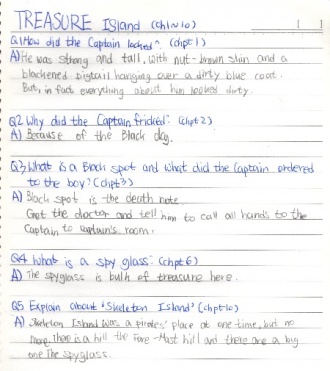 TREASURE Island (ch1~10)
Q1 How did the Captain looked? (chpt 1)
A) He was strong and tall, with nut-brown skin and a
blackened pigtail hanging over a dirty blue coat.
But, in fact everything about him looked dirty.
Q2 Why did the Captain fricked? (chpt2)
A) Because of the Black dog.
Q3 What is a Black spot and what did the Captain ordered
to the boy? (chpt3)
A) Black spot is the death note.
Get the doctor and tell him to call all hands to the
Captain to captain's room.
Q4 What is a spy glass? (chpt6)
A) The spyglass is bulk of treasure here.
Q5 Explain about 'Skeleton Island' (chpt10)
A) Skeleton Island was a pirates' place at one time, but no
more. There is a hill the Fore-Mast hill and there are a big
one The spyglass.